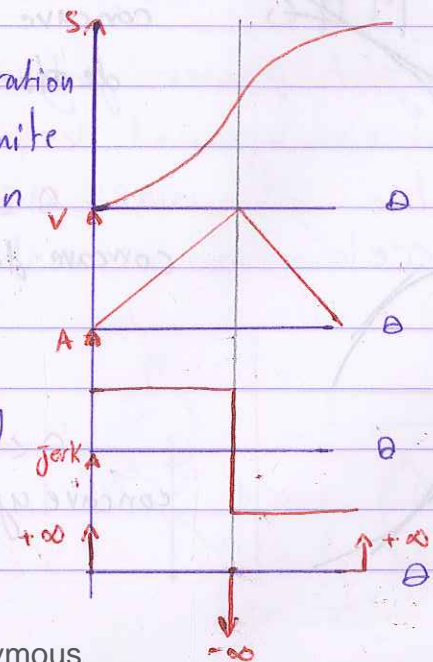 S
ration
nite
n
θ
V
θ
A
θ
jerk
+∞ +∞
θ
-∞
ymous